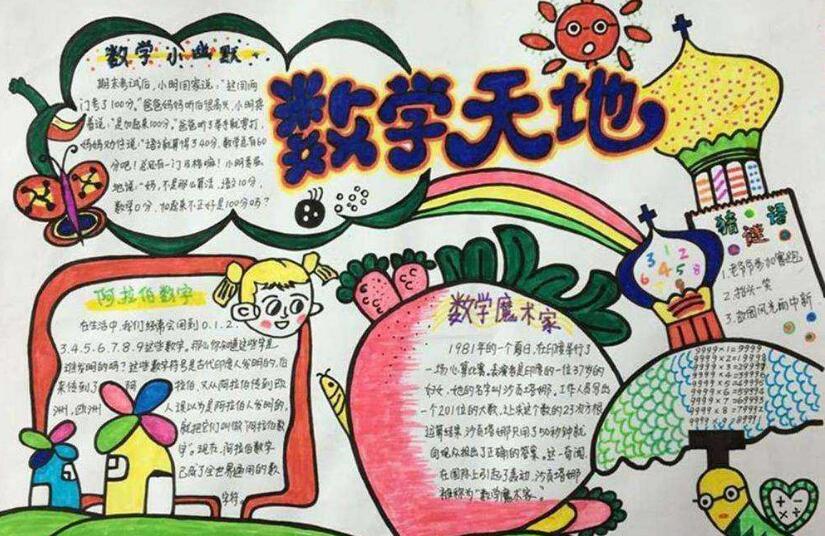 数学天地
数学小幽默
期末考试后，小明回家说："这回两
门考了100分。"爸爸妈妈听后很高兴，小明接
着说："是加起来100分。"爸爸听了举手就要打，
妈妈劝住说："语文就算得了40分，数学总有60
分吧！总还有一门及格嘛！小明委屈
地说："妈，不是那么算法，语文10分，
数学0分，加起来不正好是100分吗？
阿拉伯数字
在生活中，我们经常会用到0.1.2.
3.4.5.6.7.8.9这些数字。那么你知道这些字是
谁发明的吗？这些数字符号是古代印度人发明的，后
来传到了阿拉伯，又从阿拉伯传到欧
洲，欧洲人误以为是阿拉伯人发明的，
就把它们叫做"阿拉伯数
字"。现在，阿拉伯数字
已成了全世界通用的数
字符。
数学魔术家
1981年的一个夏日，在印度举行了
一场心算比赛。表演者是印度的一位37岁的
妇女，她的名字叫沙贡塔娜。工作人员写出
一个201位的大数，让求这个数的23次方根
运算结果，沙贡塔娜只用了50秒钟就
向观众报出了正确的答案。这一奇闻，
在国际上引起了轰动，沙贡塔娜
被称为"数学魔术家"。
3 1 2
6 4 5 8
猜谜语
1.老爷爷参加赛跑
2.抬头一笑
3.故国风光雨中新
9999×1=9999
9999×2=19998
9999×3=
9999×4=
9999×5=
9999×6=
9999×7=
9999×8=
9999×9=
+ - × ÷